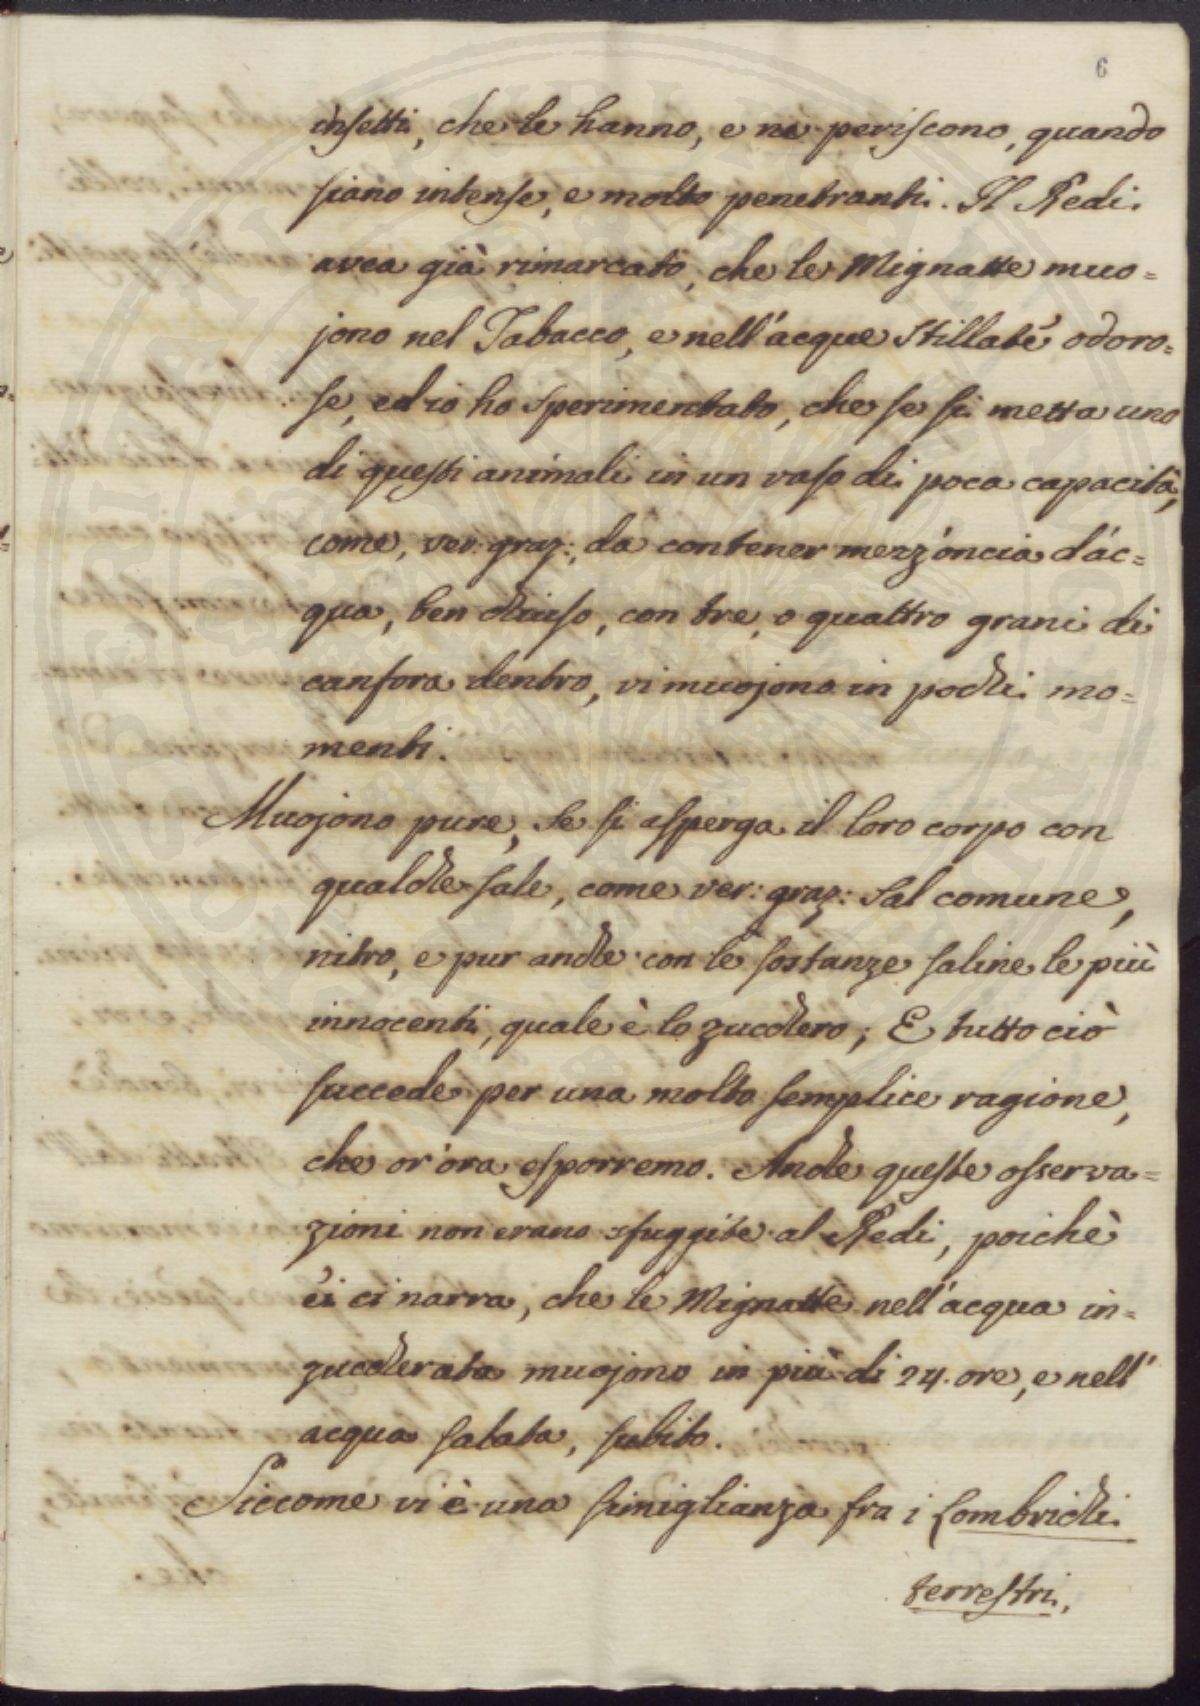 6
insetti, che le hanno, e ne periscono, quando
siano intense, e molto penetranti. Il Redi
avea già rimarcato, che le Mignatte muo=
jono nel Tabacco, e nell'acque stillate odoro=
se, ed io ho sperimentato, che se si metta uno
di questi animali in un vaso di poca capacità,
come, ver: graz:, da contener mezz'oncia d'ac=
qua, ben chiuso, con tre, o quattro grani di
canfora dentro, vi muojono in pochi mo=
menti.
Muojono pure, se si asperga il loro corpo con
qualche sale, come ver: graz: sal comune,
nitro, e pur anche con le sostanze saline le più
innocenti, quale è lo zucchero; E tutto ciò
succede per una molto semplice ragione,
che or'ora esporremo. Anche queste osserva=
zioni non erano sfuggite al Redi, poichè
ei ci narra, che le Mignatte nell'acqua in=
zuccherata muojono in più di 24. ore, e nell'
acqua salata, subito.
Siccome vi è una simiglianza fra i Lombrichi
terrestri,